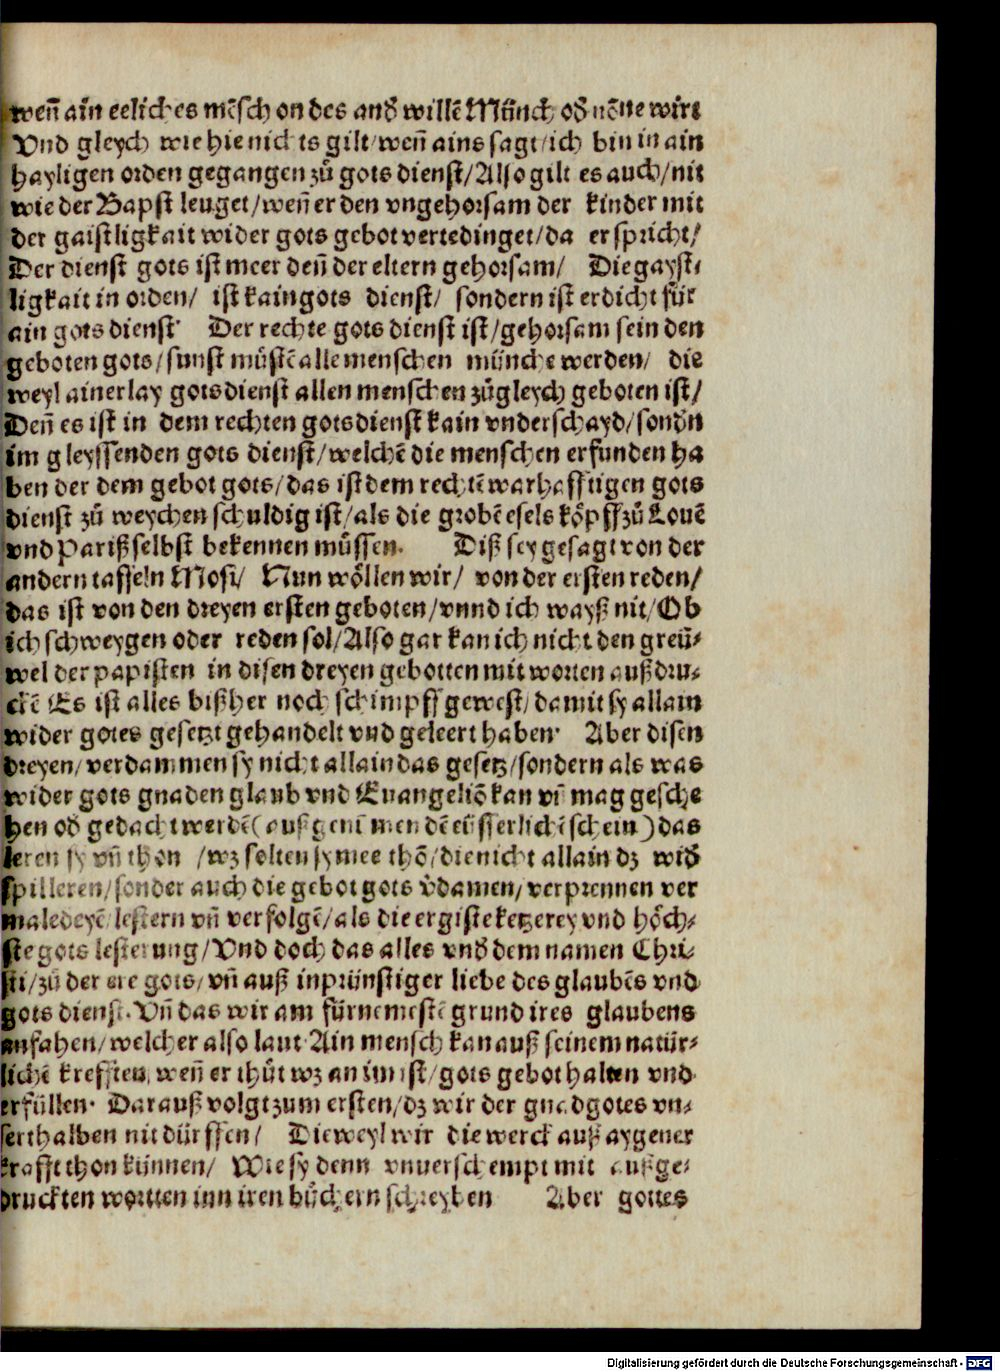 weñ ain eelich es mẽsch on des andď willẽ Münch odď nõne wirt
Vnd gleych wie hie nichts gilt/ weñ ains sagt/ ich bin in ain
hayligen orden gegangen zů gots dienst/ Also gilt es auch/ nit
wie der Bapst leuget/ weñ er den vngehorsam der kinder mit
der gaistligkait wider gots gebot vertedinget/ da er spricht/
Der dienst gots ist meer deñ der eltern gehorsam/ Die gayst⸗
ligkait in orden/ ist kain gots dienst/ sondern ist erdicht für
ain gots dienst· Der rechte gots dienst ist/ gehorsam sein den
geboten gots/ sunst müstẽ alle menschen münche werden/ die
weyl ainerlay gotsdienst allen menschen zůgleych geboten ist/
Deñ es ist in dem rechten gotsdienst kain vnderschayd/ sondďn
im gleyssenden gots dienst/ welchẽ die menschen erfunden ha
ben der dem gebot gots/ das ist dem rechtẽ warhafftigen gots
dienst zů weychen schuldig ist/ als die grobẽ esels kôpff zů Louẽ
vnd Pariß selbst bekennen müssen. Diß sey gesagt von der
andern taffeln Mosi/ Nun wôllen wir/ von der ersten reden/
das ist von den dreyen ersten geboten/ vnnd ich wayß nit/ Ob
ich schweygen oder reden sol/ Also gar kan ich nicht den greü⸗
wel der papisten in disen dreyen gebotten mit worten außdru⸗
ckẽ Es ist alles bißher noch schimpff gewest/ damit sy allain
wider gotes gesetzt gehandelt vnd geleert haben· Aber disen
dreyen/ verdammen sy nicht allain das gesetz/ sondern als was
wider gots gnaden glaub vnd Euangeliõ kan vñ mag gesche
hen odď gedacht werdẽ (außgenũmen dẽ eüsserlichẽ schein) das
leren sy vñ thon / wz solten sy mee thõ/ die nicht allain dz widď
spil leren/ sonder auch die gebot gots vďdamen/ verprennen ver
maledeyẽ lestern vñ verfolgẽ/ als die ergiste ketzerey vnd hôch⸗
ste gots lesterung/ Vnd doch das alles vndď dem namen Chri⸗
sti/ zů der ere gots/ vñ auß inprünstiger liebe des glaubẽs vnd
gots dienst. Vñ das wir am fürnemestẽ grund ires glaubens
anfahen/ welcher also laut· Ain mensch kan auß seinem natür⸗
lichẽ krefften, weñ er thůt wz an im ist/ gots gebot halten vnd
erfüllen· Darauß volgt zum ersten/ dz wir der gnad gotes vn⸗
serthalben nit dürffen/ Die weyl wir die werck auß aygener
krafft thon künnen/ Wie sy denn vnuerschempt mit außge⸗
druckten wortten inn iren bůchern schreyben Aber gottes
Digitalisierung gefördert durch die Deutsche Forschungsgemeinschaft - DFG